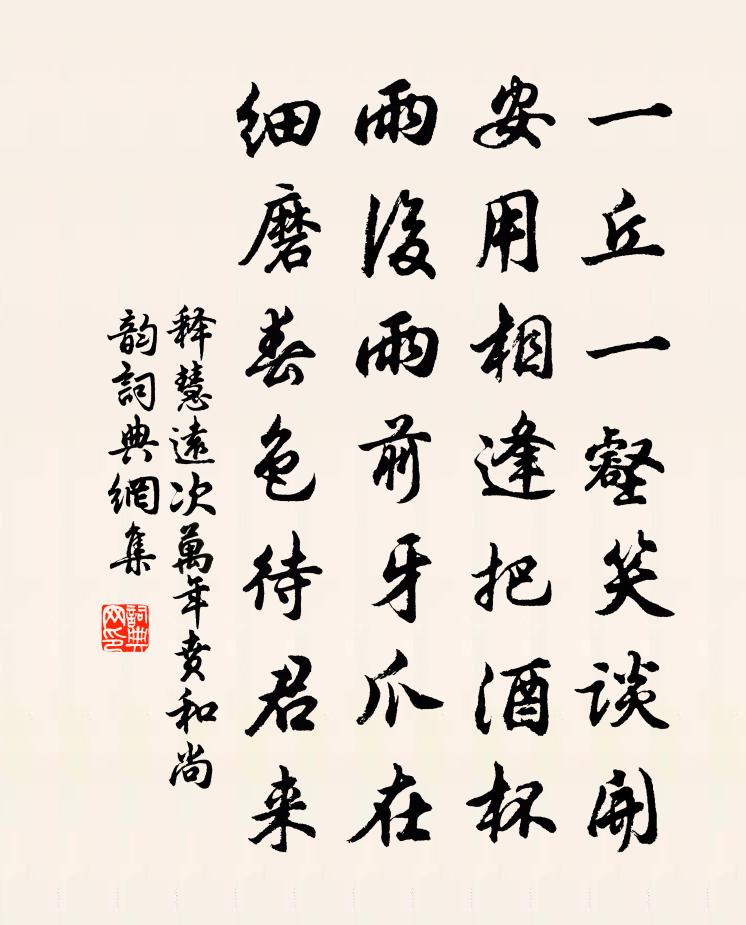 一丘一壑笑談開
安用相逢把酒杯
雨後雨前牙爪在
細磨春色待君来
释慧遠次萬年賁和尚
韵詞典網集
詞典
网印